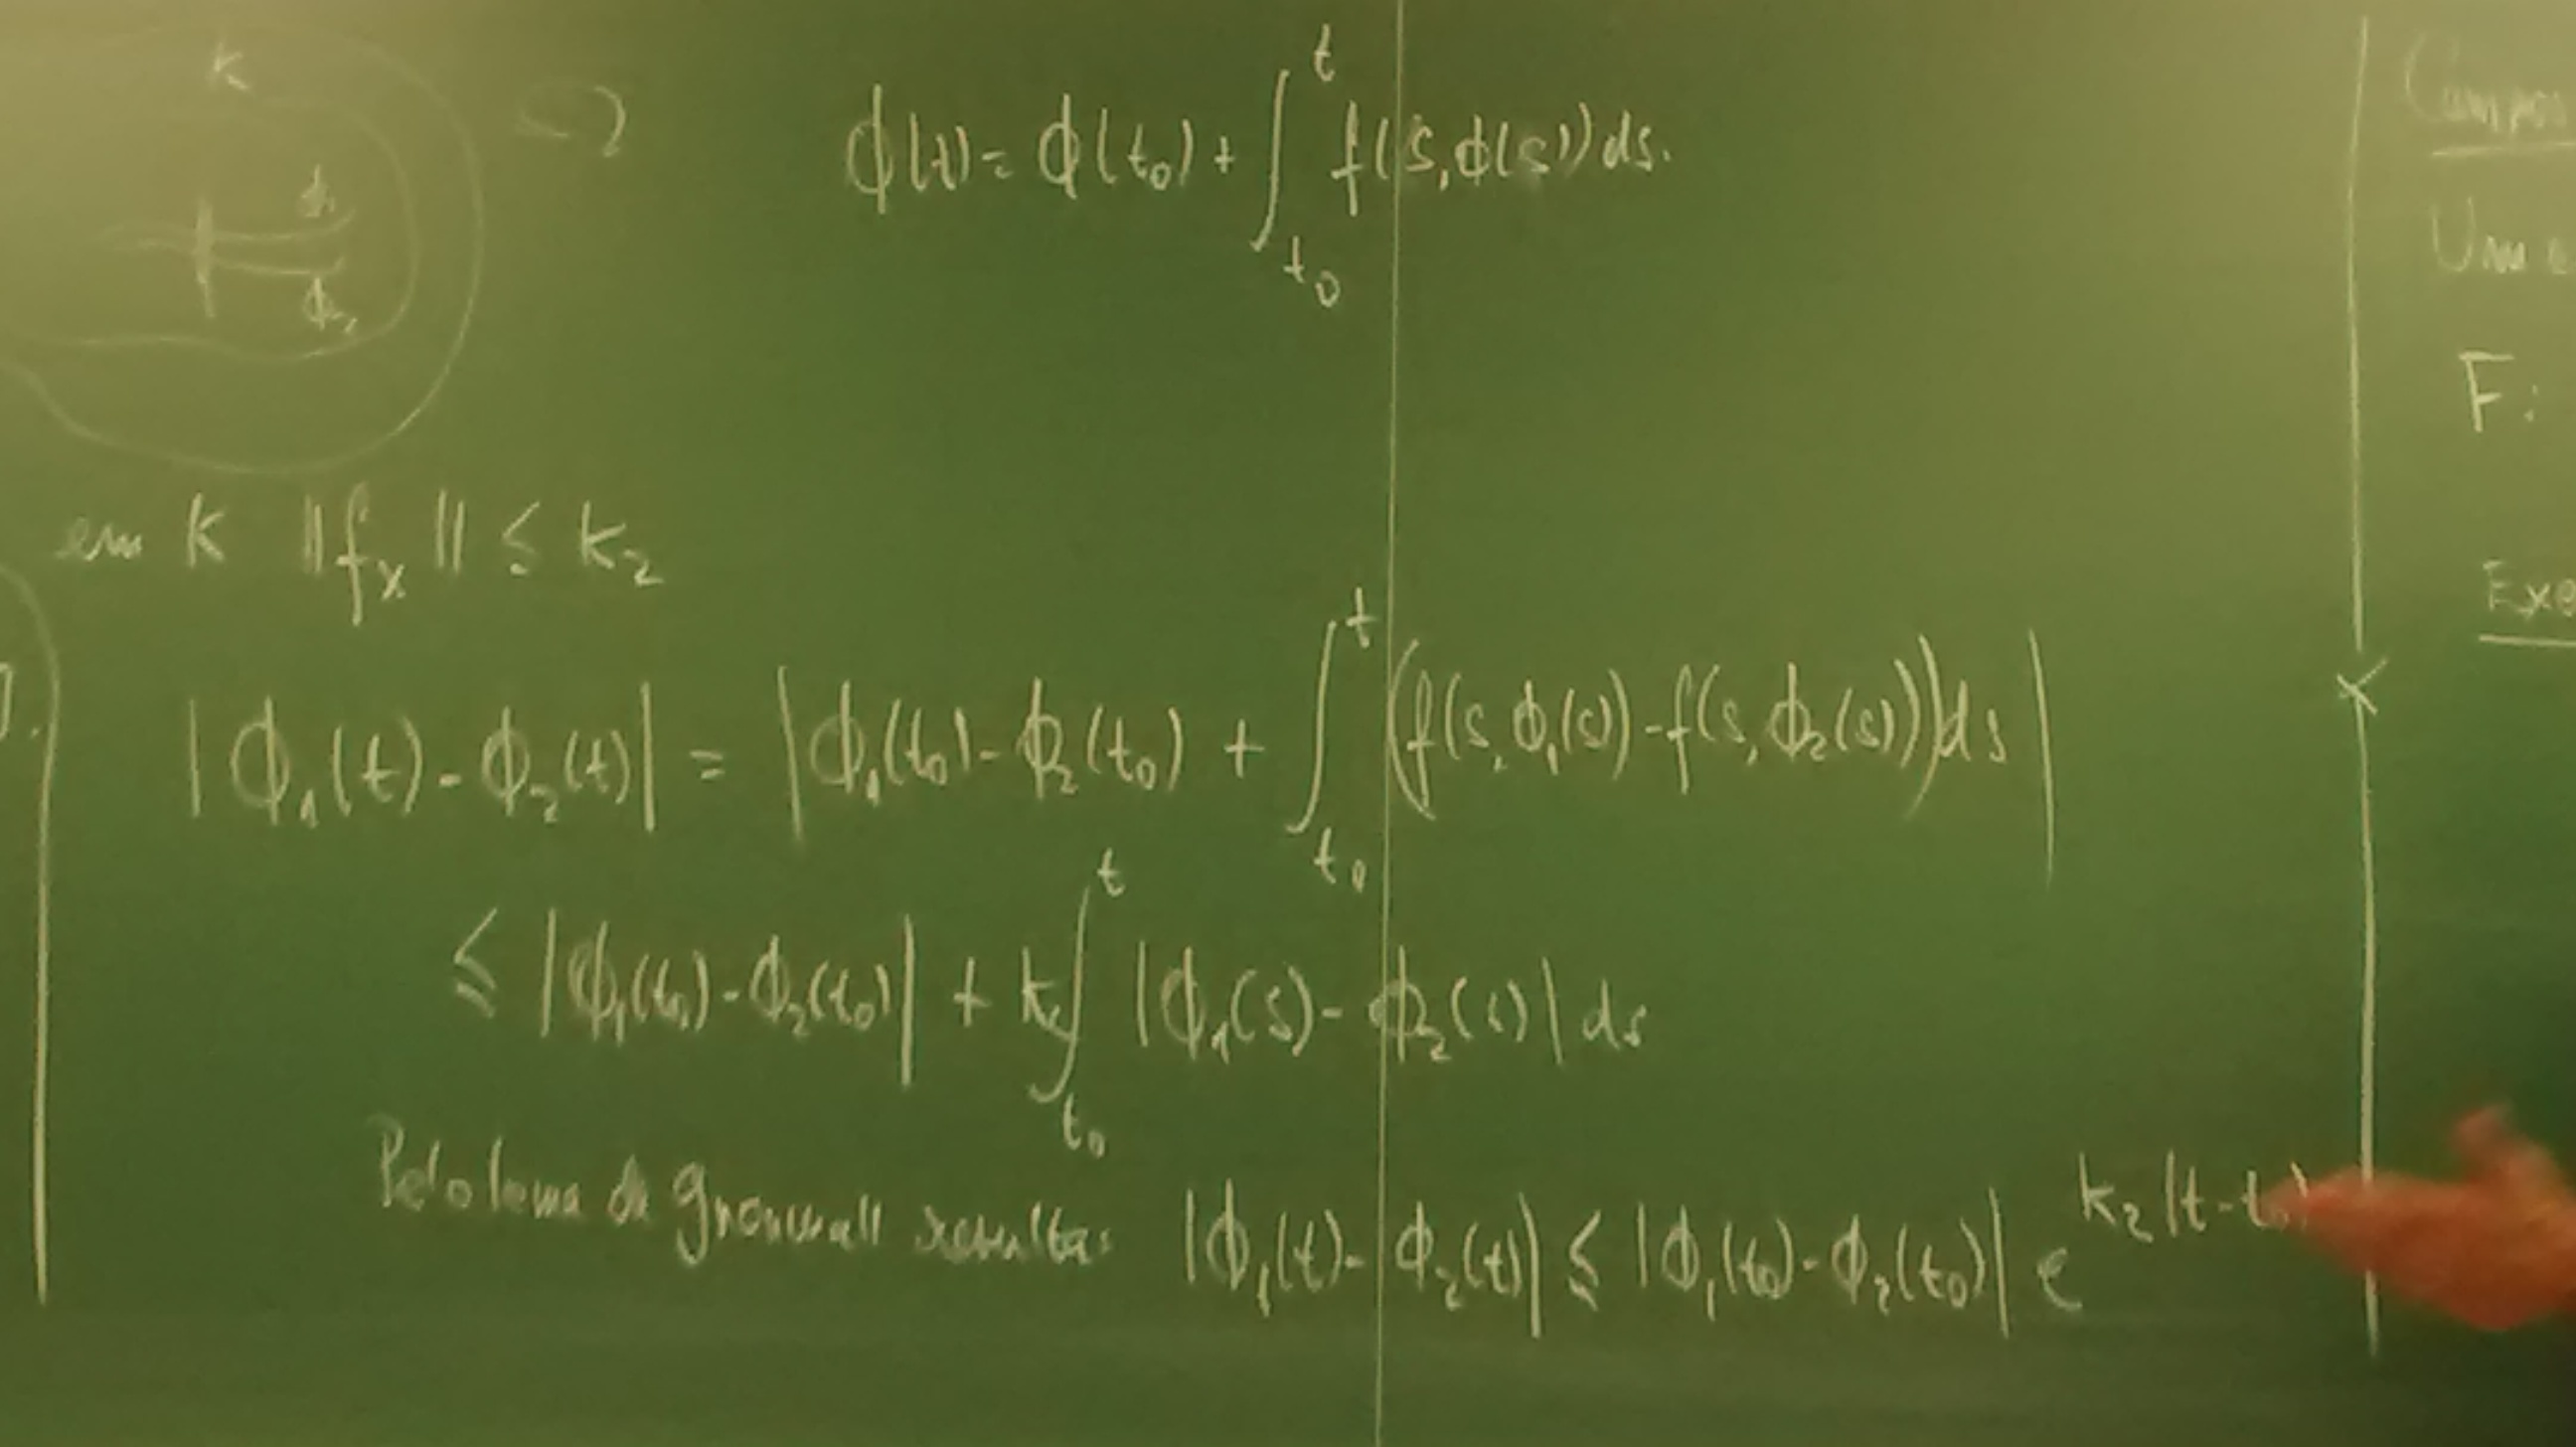 K
ϕ(t) = ϕ(t₀) + ∫_{t₀}^{t} f(s, ϕ(s)) ds.
ϕ₁
ϕ₂
em K ||fₓ|| ≤ k₂
|ϕ₁(t) - ϕ₂(t)| = |ϕ₁(t₀) - ϕ₂(t₀) + ∫_{t₀}^{t} (f(s, ϕ₁(s)) - f(s, ϕ₂(s))) ds|
≤ |ϕ₁(t₀) - ϕ₂(t₀)| + k ∫_{t₀}^{t} |ϕ₁(s) - ϕ₂(s)| ds
Pelo lema de Gronwall resulta: |ϕ₁(t) - ϕ₂(t)| ≤ |ϕ₁(t₀) - ϕ₂(t₀)| e^{k₂|t-t₀|}
Um
F:
Exe